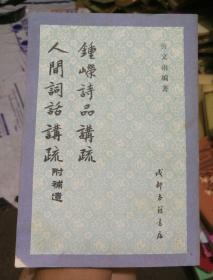 許文雨編著
鍾嶸詩品講疏
人間詞話講疏 附補遺
成都古籍書店